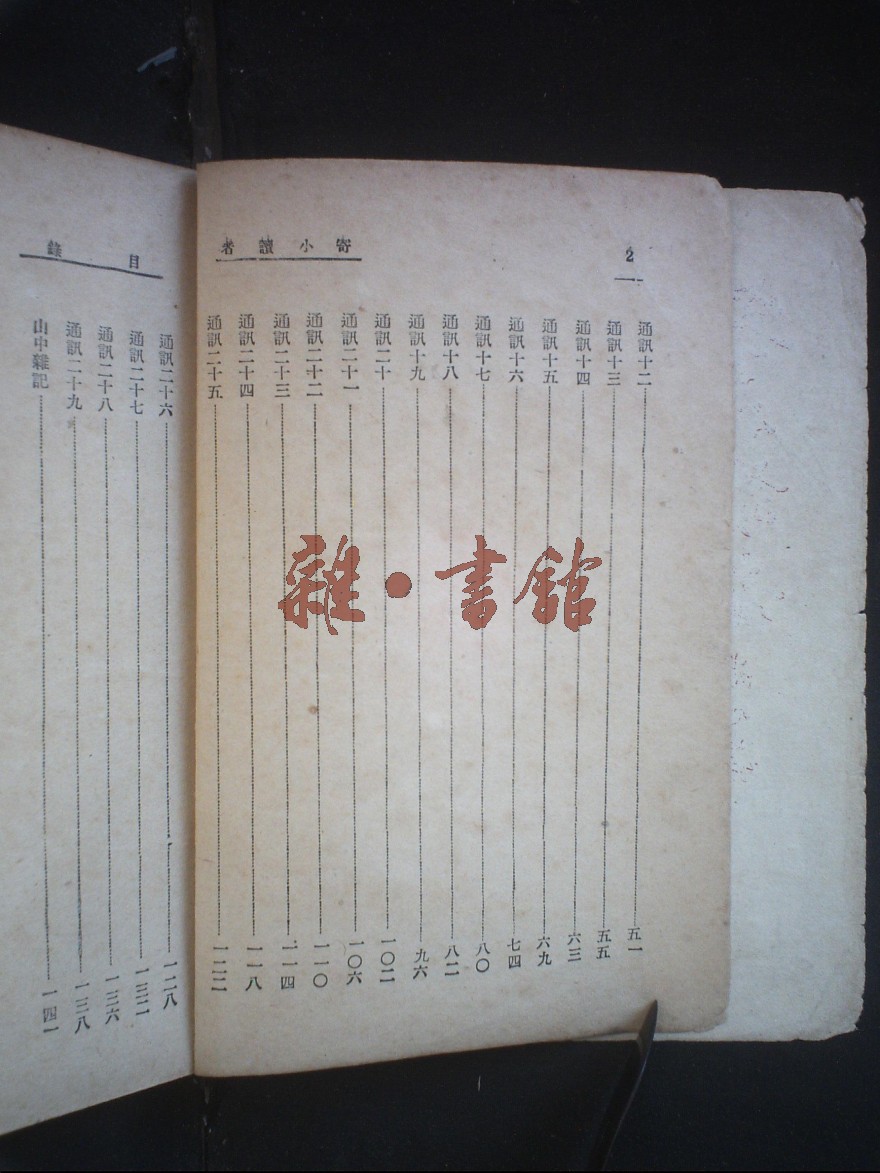 2
寄小讀者
通訊十二 五一
通訊十三 五五
通訊十四 六三
通訊十五 六九
通訊十六 七四
通訊十七 八〇
通訊十八 八二
通訊十九 九六
通訊二十 一〇二
通訊二十一 一〇六
通訊二十二 一一〇
通訊二十三 一一四
通訊二十四 一一八
通訊二十五 一二二
目錄
通訊二十六 一二八
通訊二十七 一三二
通訊二十八 一三六
通訊二十九 一三八
山中雜記 一四一
雜·書館